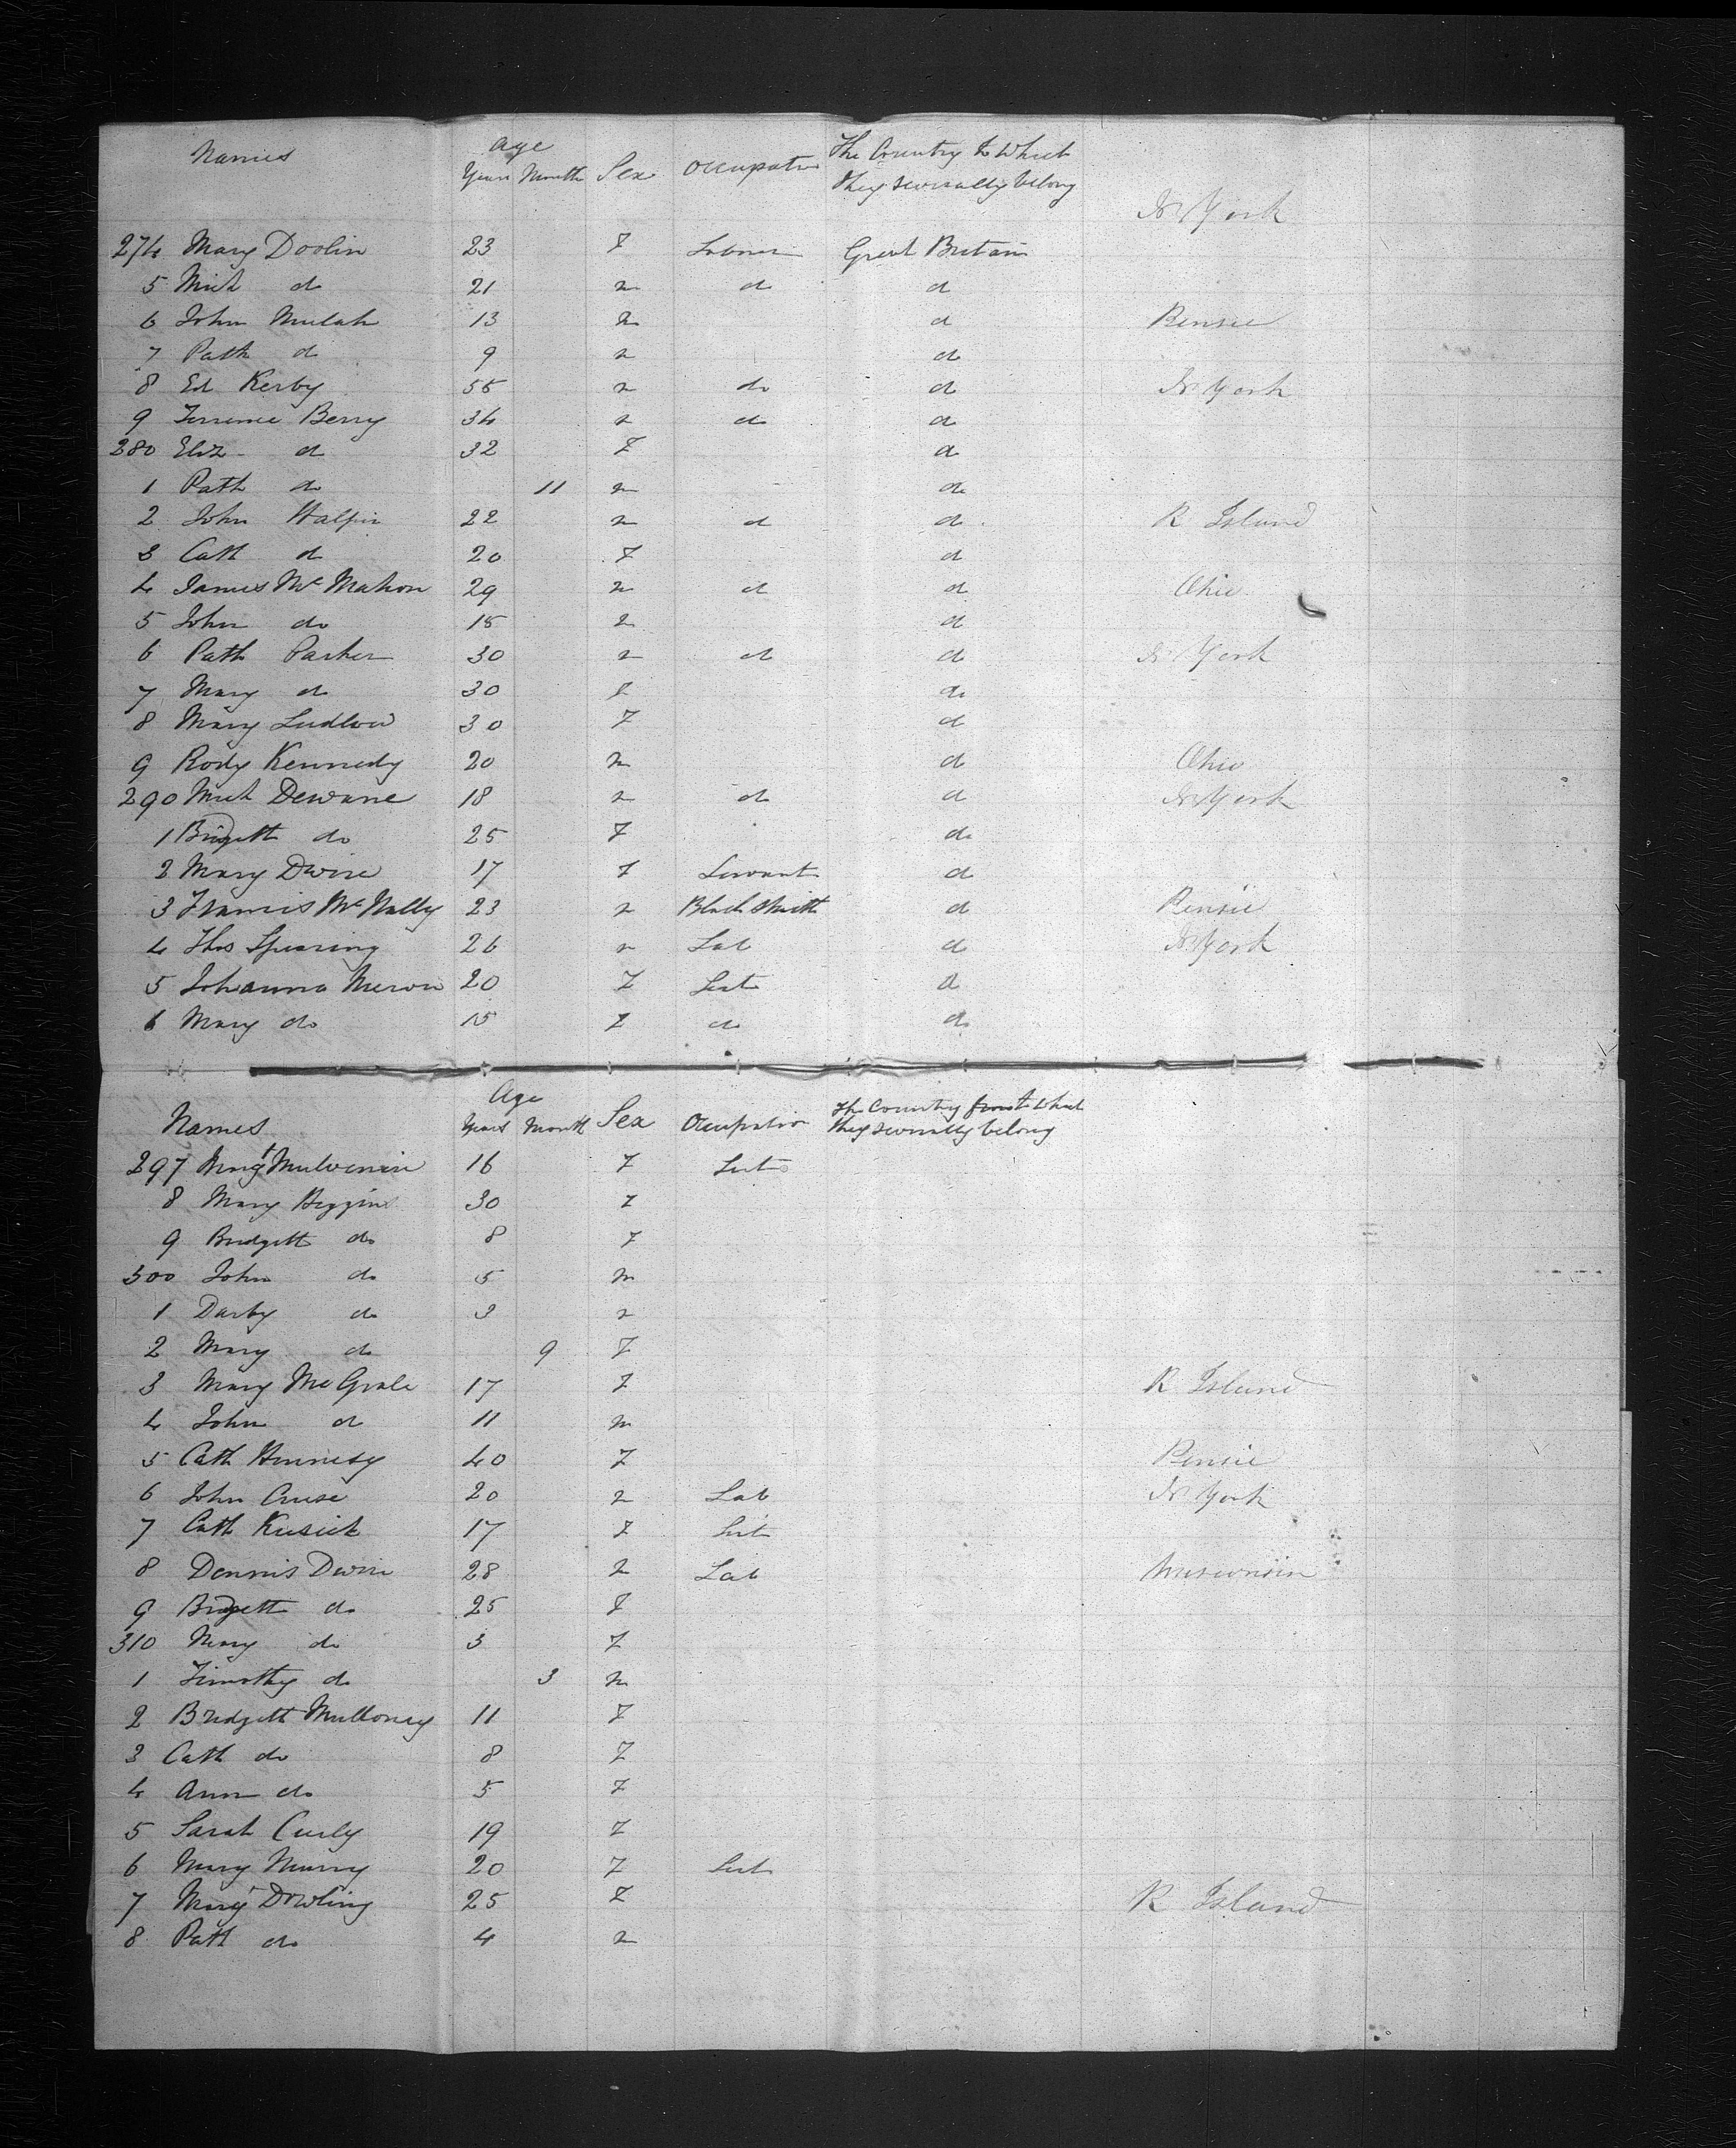 Names Age Years Month Sex Occupatn The Country to which they severally belong
N York
274 Mary Doolin 23 F Laborer Great Britain
5 Mich do 21 m do do
6 John Mulah 13 m d Pensie
7 Patk d 9 m do
8 Ed Kerby 55 m do d N York
9 Terrence Berry 34 m do d
280 Eliz d 32 F d
1 Patk do 11 m do
2 John Halpin 22 m d d R Island
3 Cath d 20 F d
4 James McMahon 29 m d d Ohio
5 John do 15 m d
6 Patk Parker 30 m d d N York
7 Mary do 30 f do
8 Mary Ludlow 30 F d
9 Rody Kennedy 20 m d Ohio
290 Mich Dewane 18 m do d N York
1 Bridgett do 25 F do
2 Mary Dwire 17 F Servant d
3 Francis McNally 23 m Black Smith d Pensie
4 Thos Spearing 26 m Lab d N York
5 Johanna 20 F Svt d
6 Mary do 15 F do do
Names Age Years Month Sex Ocupation The Country to what they severally belong
297 Margt 16 F Svt
8 Mary Higgins 30 F
9 Bridgett do 8 F
300 John do 5 m
1 Darby do 3 m
2 Mary do 9 F
3 Mary McGrale 17 F R Island
4 John d 11 m
5 Cath Hennesy 40 F Pensie
6 John Cruse 20 m Lab N York
7 Cath Kusick 17 F Svt
8 Dennis Dwire 28 m Lab Wisconsin
9 Bridgett do 25 F
310 Mary do 3 F
1 Timothy do 3 m
2 Bridgett Mulloney 11 F
3 Cath do 8 F
4 Ann do 5 F
5 Sarah Curly 19 F
6 Mary Murry 20 F Svt
7 Mary Dowling 25 F R Island
8 Patk do 4 m